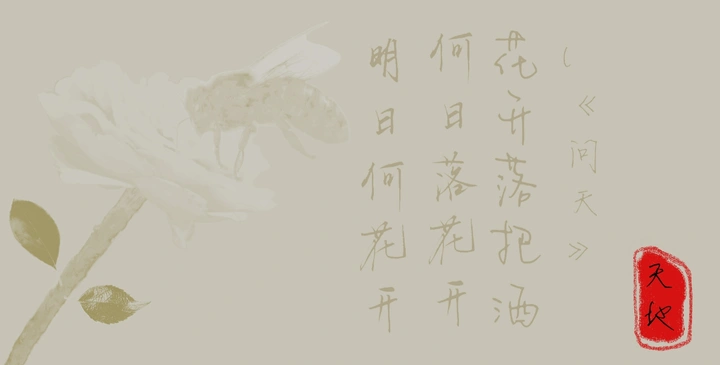 《问天》
花开落把酒
何日落花开
明日何花开
天地